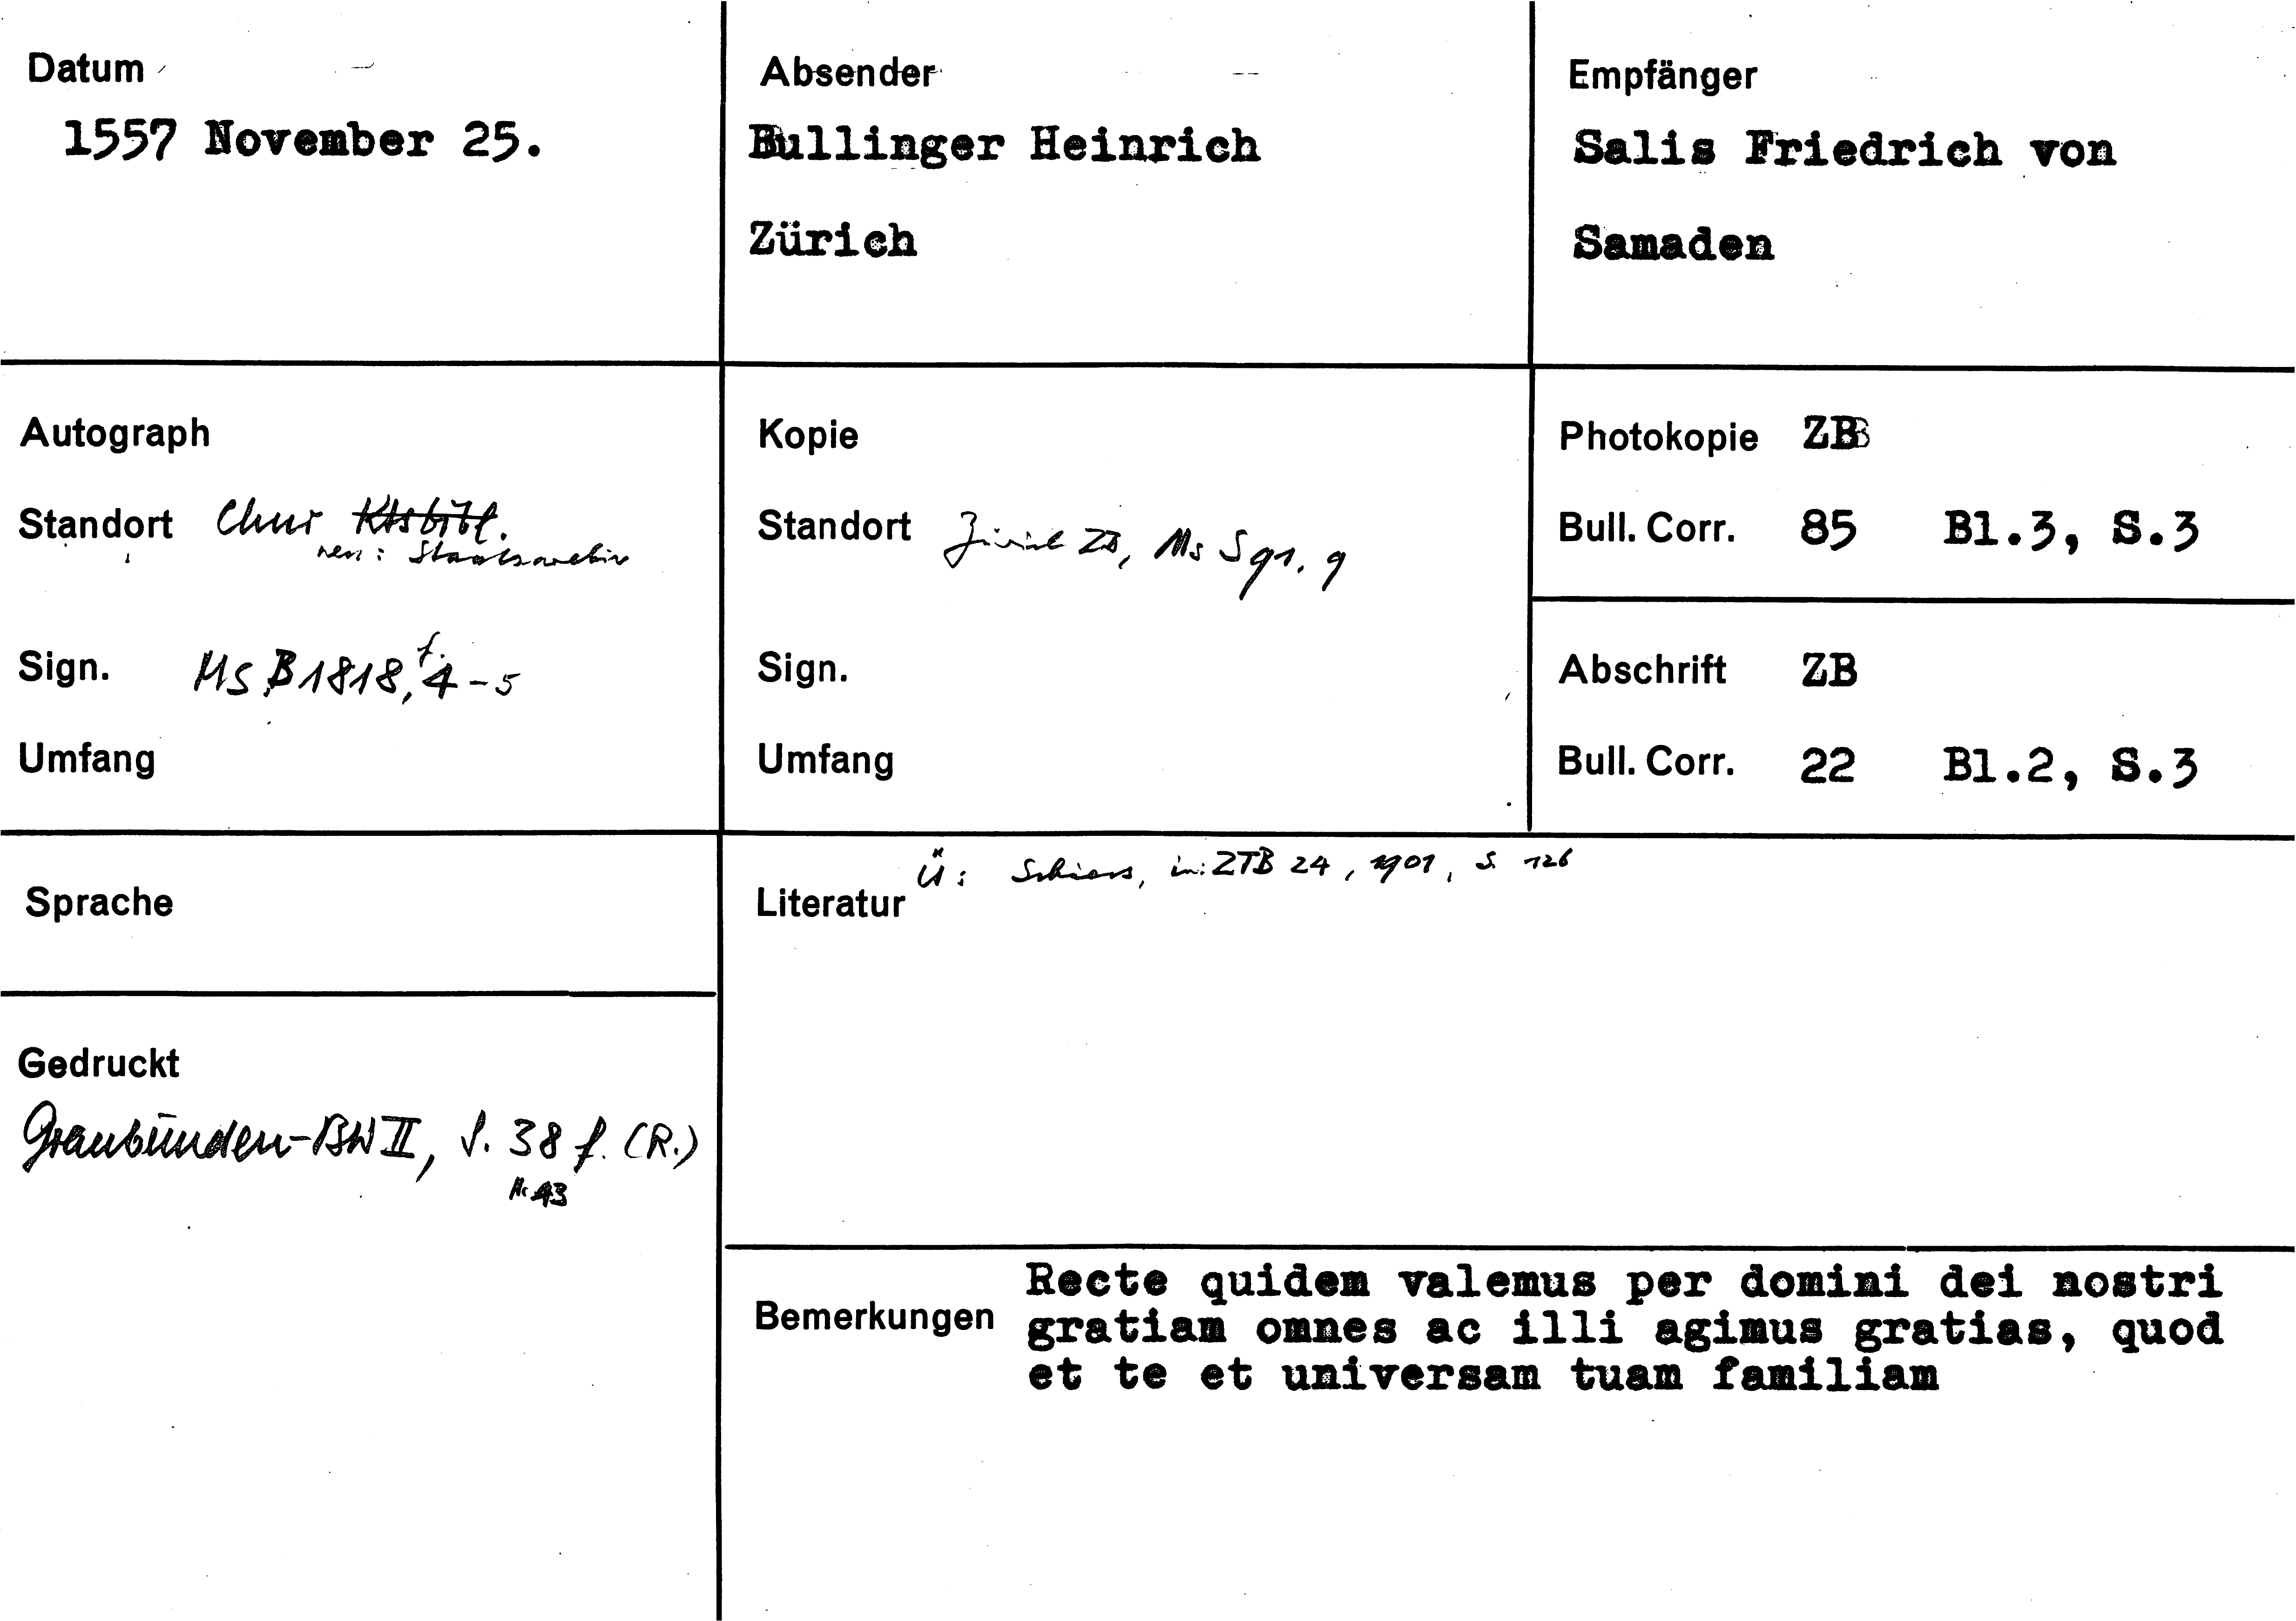 Datum
1557 November 25.
Absender
Bullinger Heinrich
Zürich
Empfänger
Salis Friedrich von
Samaden
Autograph
Standort Chur Ktsbibl.
neu: Staatsarchiv
Sign. Ms B 1818, f. 4-5
Umfang
Kopie
Standort Zürich ZB, Ms S gr. 9
Sign.
Umfang
Photokopie ZB
Bull. Corr. 85 Bl.3, S.3
Abschrift ZB
Bull. Corr. 22 Bl.2, S.3
Sprache
Gedruckt
Graubünden-BW II, S. 38 f. (R.)
Nr 43
Literatur Ü: Schiess, in: ZTB 24, 1901, S. 126
Bemerkungen
Recte quidem valemus per domini dei nostri
gratiam omnes ac illi agimus gratias, quod
et te et universam tuam familiam